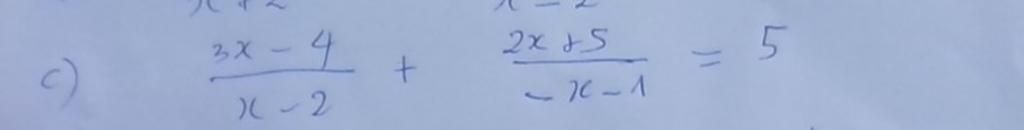 c) (3x - 4)/(x - 2) + (2x + 5)/(-x - 1) = 5